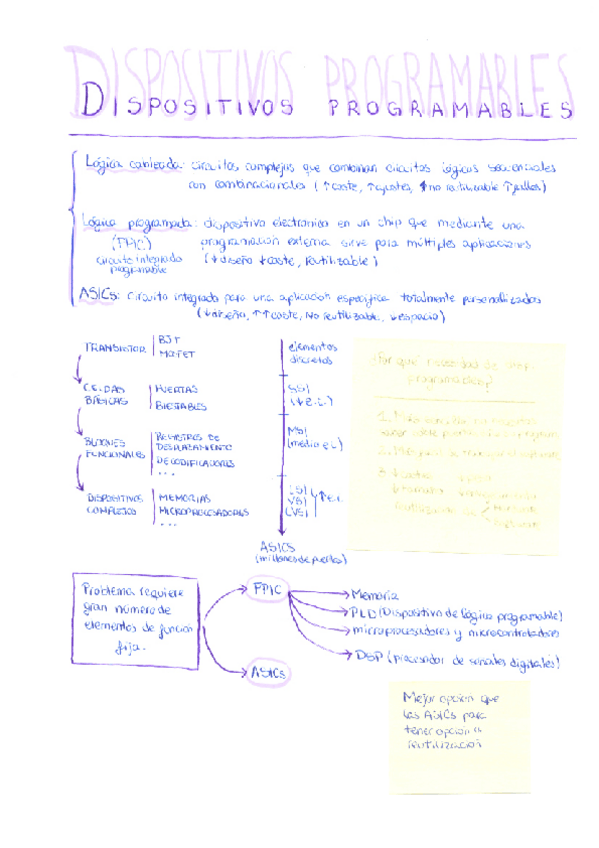 DISPOSITIVOS PROGRAMABLES
DISPOSITIVOS PROGRAMABLES
Lógica cableada: circuitos complejos que combinan circuitos lógicos secuenciales
con combinacionales (↑coste, ↑ajustes, ↑no reutilizable ↑)
Lógica programada: dispositivo electronico en un chip que mediante una
(FPIC) programación externa sirve para múltiples aplicaciones
circuito integrado (↓diseño ↓coste, reutilizable)
programable
ASICs: circuito integrado para una aplicación específica totalmente personalizados
(↓diseño, ↑↑coste, No reutilizable, ↓espacio)
TRANSISTOR BJT elementos
MOSFET discretos
CELDAS PUERTAS SSI
BÁSICAS BIESTABLES (↓e.i.)
BLOQUES REGISTROS DE MSI
FUNCIONALES DESPLAZAMIENTO (media e.i.)
DECODIFICADORES
...
DISPOSITIVOS MEMORIAS LSI
COMPLEJOS MICROPROCESADORES VSI ↑e.i.
... LVSI
ASICS
(millones de puertas)
¿Por qué necesidad de
programables?
1.
2.
3.
Problema requiere
gran número de
elementos de función
fija.
FPIC
ASICs
Memoria
PLD (Dispositivo de lógica programable)
microprocesadores y microcontroladores
DSP (procesador de señales digitales)
Mejor opción que
las ASICs para
tener opción a
reutilización